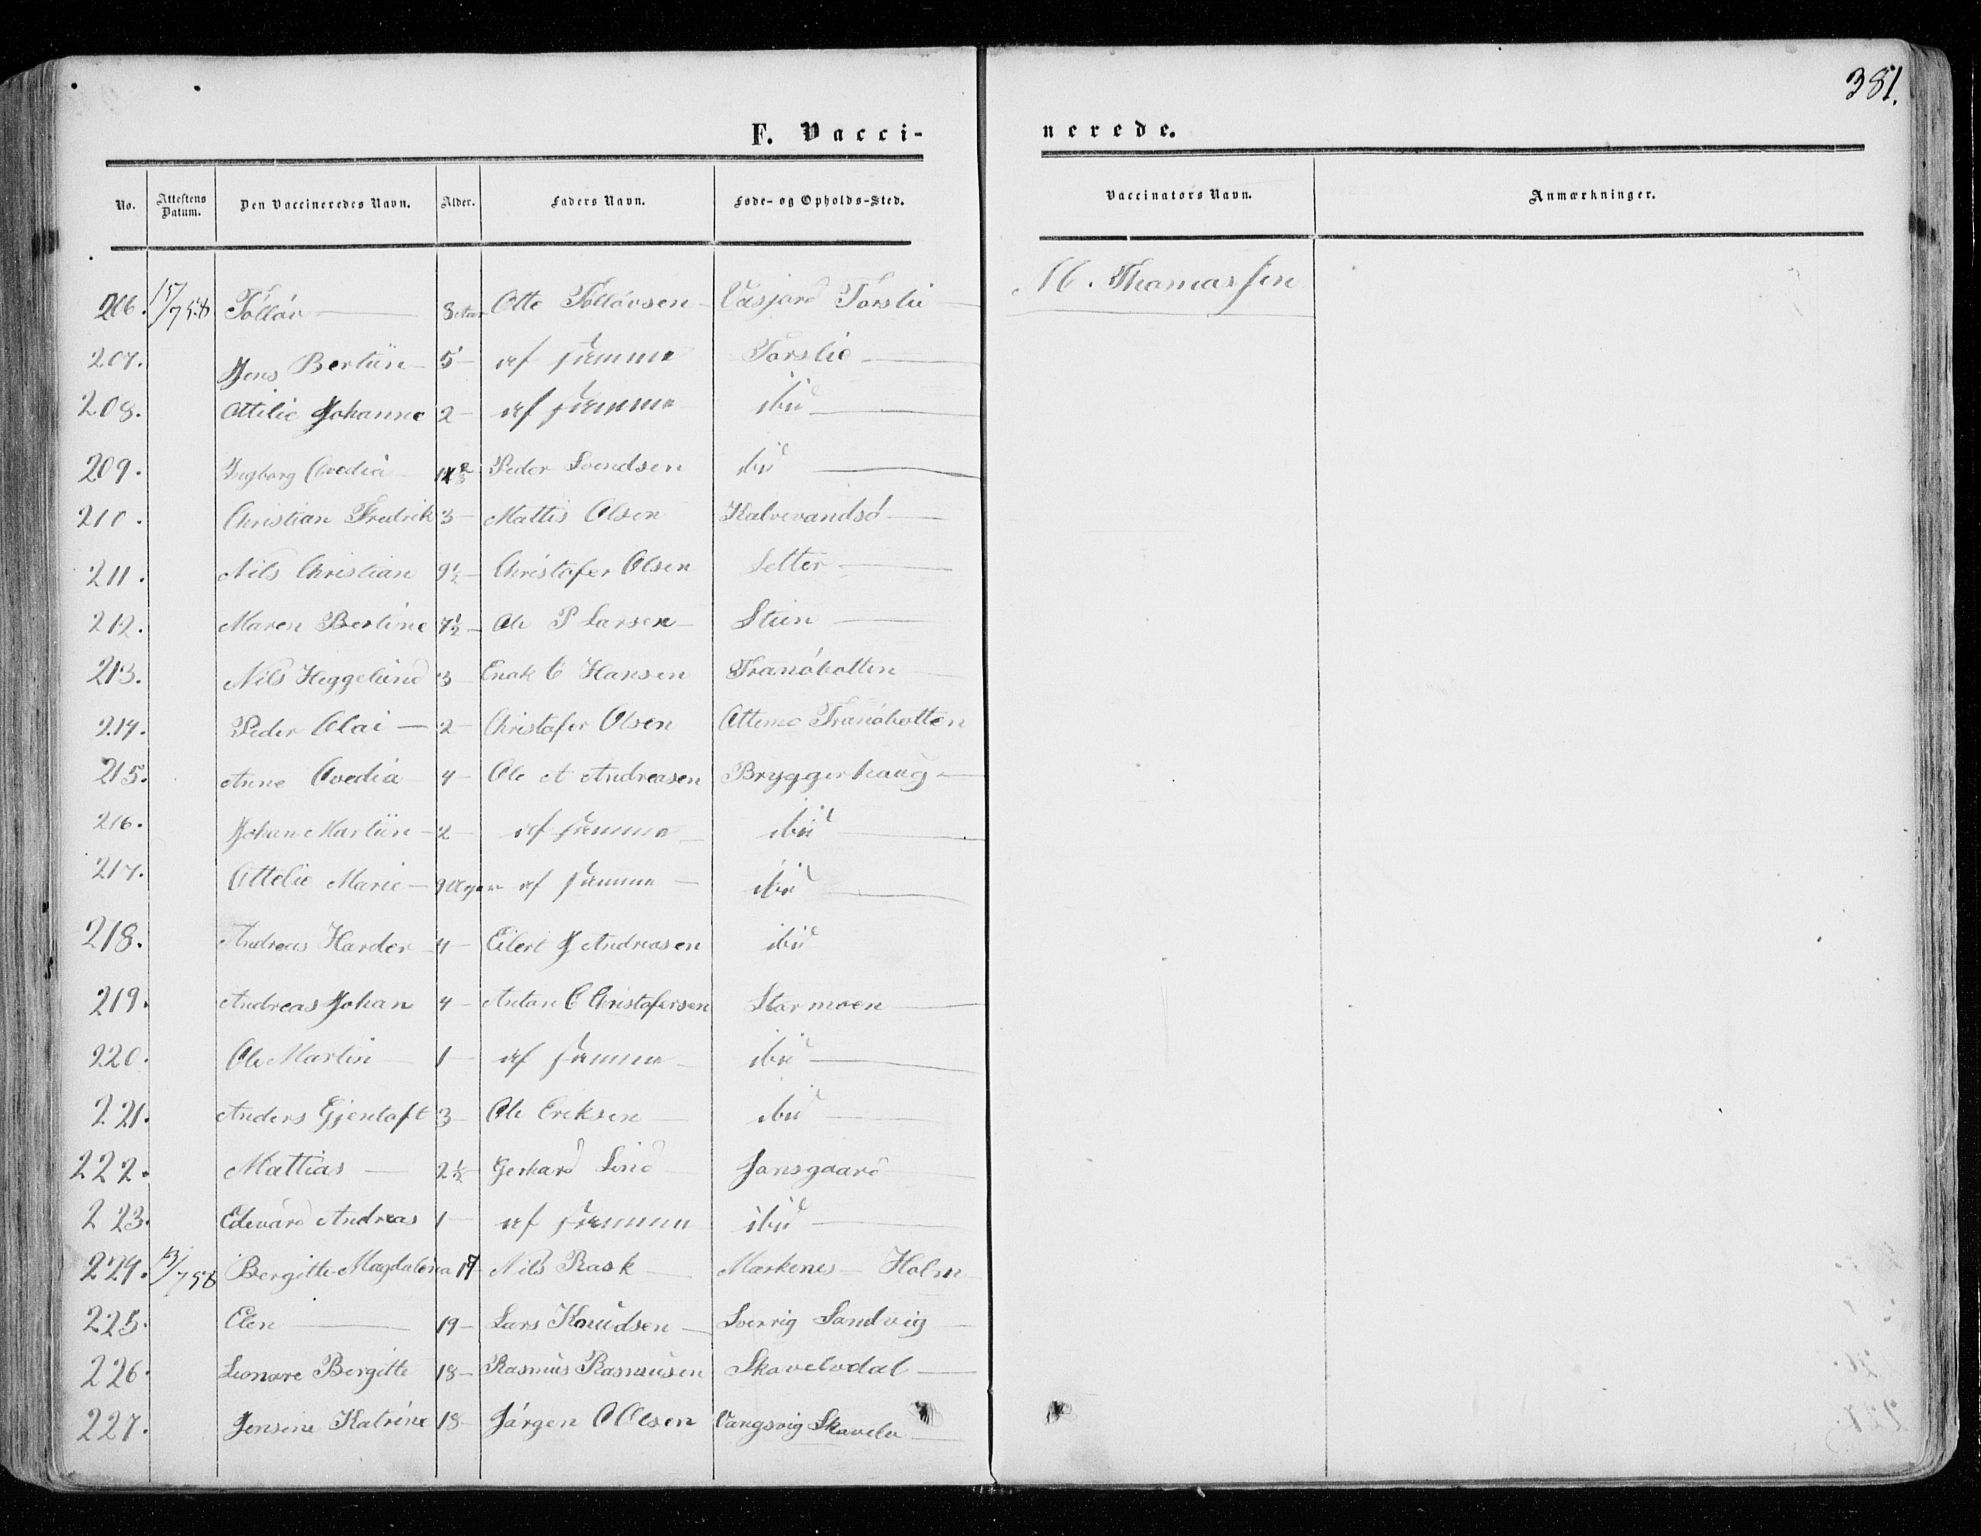 381.
F. Vacci-nerede.
No. Attestens Datum. Den Vaccineredes Navn. Alder. Faders Navn. Føde- og Opholds-Sted. Vaccinators Navn. Anmærkninger.
206. 15/7 58 Tølløv 8 Aar Otto Tølløvsen Vasjord Torslie M. Thomassen
207. Jens Bertün 5 af samme Torslie
208. Ottilie Johanne 2 af samme ibid
209. Ingborg Ovedia Peder Svendsen ibid
210. Christian Fredrik 3 Mattis Olsen Kalvevandsø
211. Nils Christian 9½ Christofer Olsen Letter
212. Maren Bertine 7½ Ole P Larsen Stün
213. Nils Heggelund 3 Enok C Hansen Tranøbotten
214. Peder Olai 2 Christofer Olsen Tranøbotten
215. Anne Ovedia 4 Ole A Andreasen Bryggerhaug
216. Johan Martün 2 af samme ibid
217. Ottelie Marie 9 af samme ibid
218. Andreas Harder 4 Eilert J Andreasen ibid
219. Andreas Johan 4 Anton C Christofersen Stormoen
220. Ole Martin 1 af samme ibid
221. Anders Gjentoft 3 Ole Eriksen ibid
222. Mattias 2½ Gerhard Lind Jonsgaard
223. Edevard Andreas 1 af samme ibid
224. 13/7 58 Bergitte Magdalena 17 Nils Rask Markenes Holm
225. Elen 19 Lars Knudsen Sverrig Sandvig
226. Leonore Bergitte 18 Rasmus Rasmusen Skavelvdal
227. Jensine Katrine 18 Jørgen O Olsen Vangsvig Skavelv